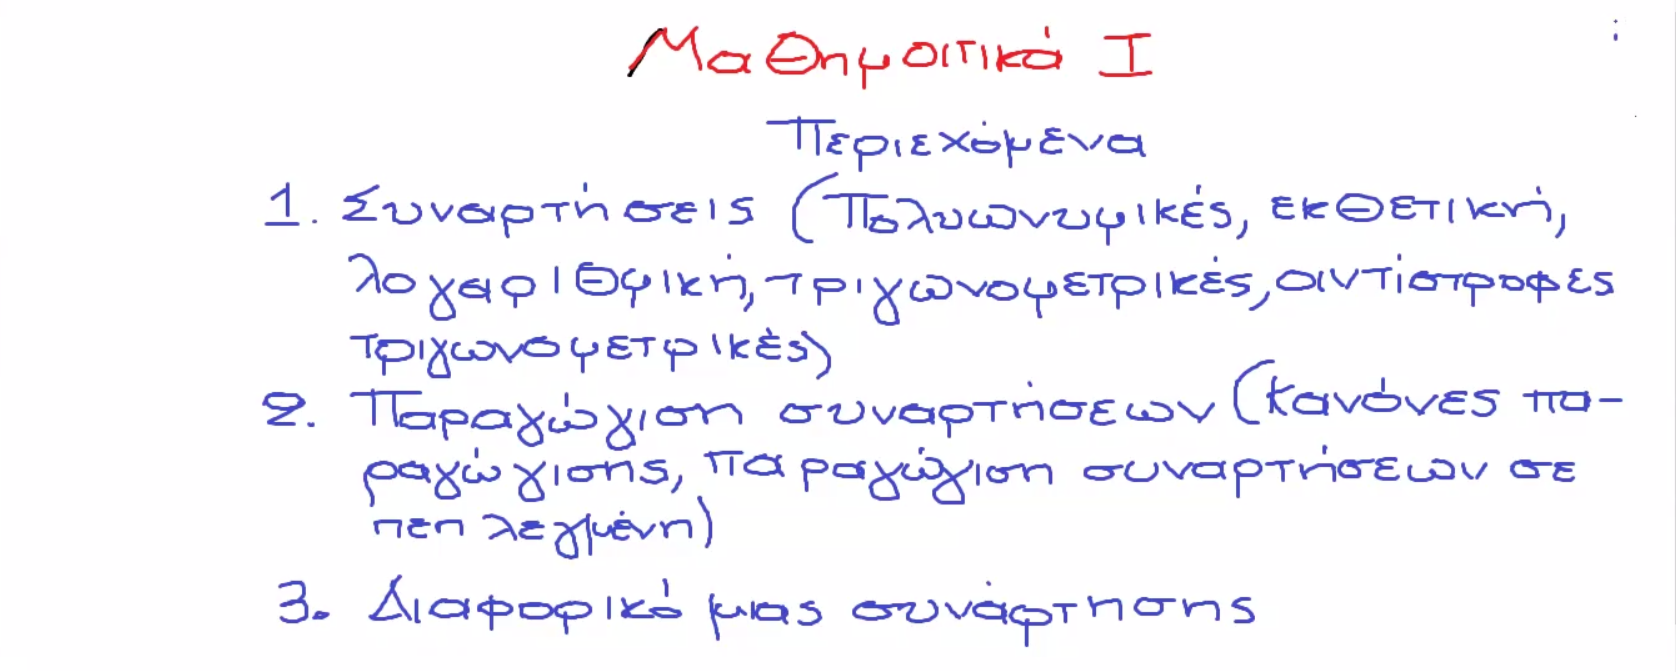 Μαθηματικά Ι
Περιεχόμενα
1. Συναρτήσεις (Πολυωνυμικές, εκθετική,
λογαριθμική, τριγωνομετρικές, αντίστροφες
τριγωνομετρικές)
2. Παραγώγιση συναρτήσεων (κανόνες πα-
ραγώγισης, παραγώγιση συναρτήσεων σε
πεπλεγμένη)
3. Διαφορικό μιας συνάρτησης